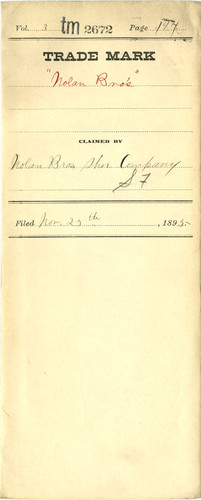 Vol. 3 tm 2672 Page 177
TRADE MARK
"Nolan Bro's"
CLAIMED BY
Nolan Bros Shoe Company
SF
Filed Nov. 25th, 1895